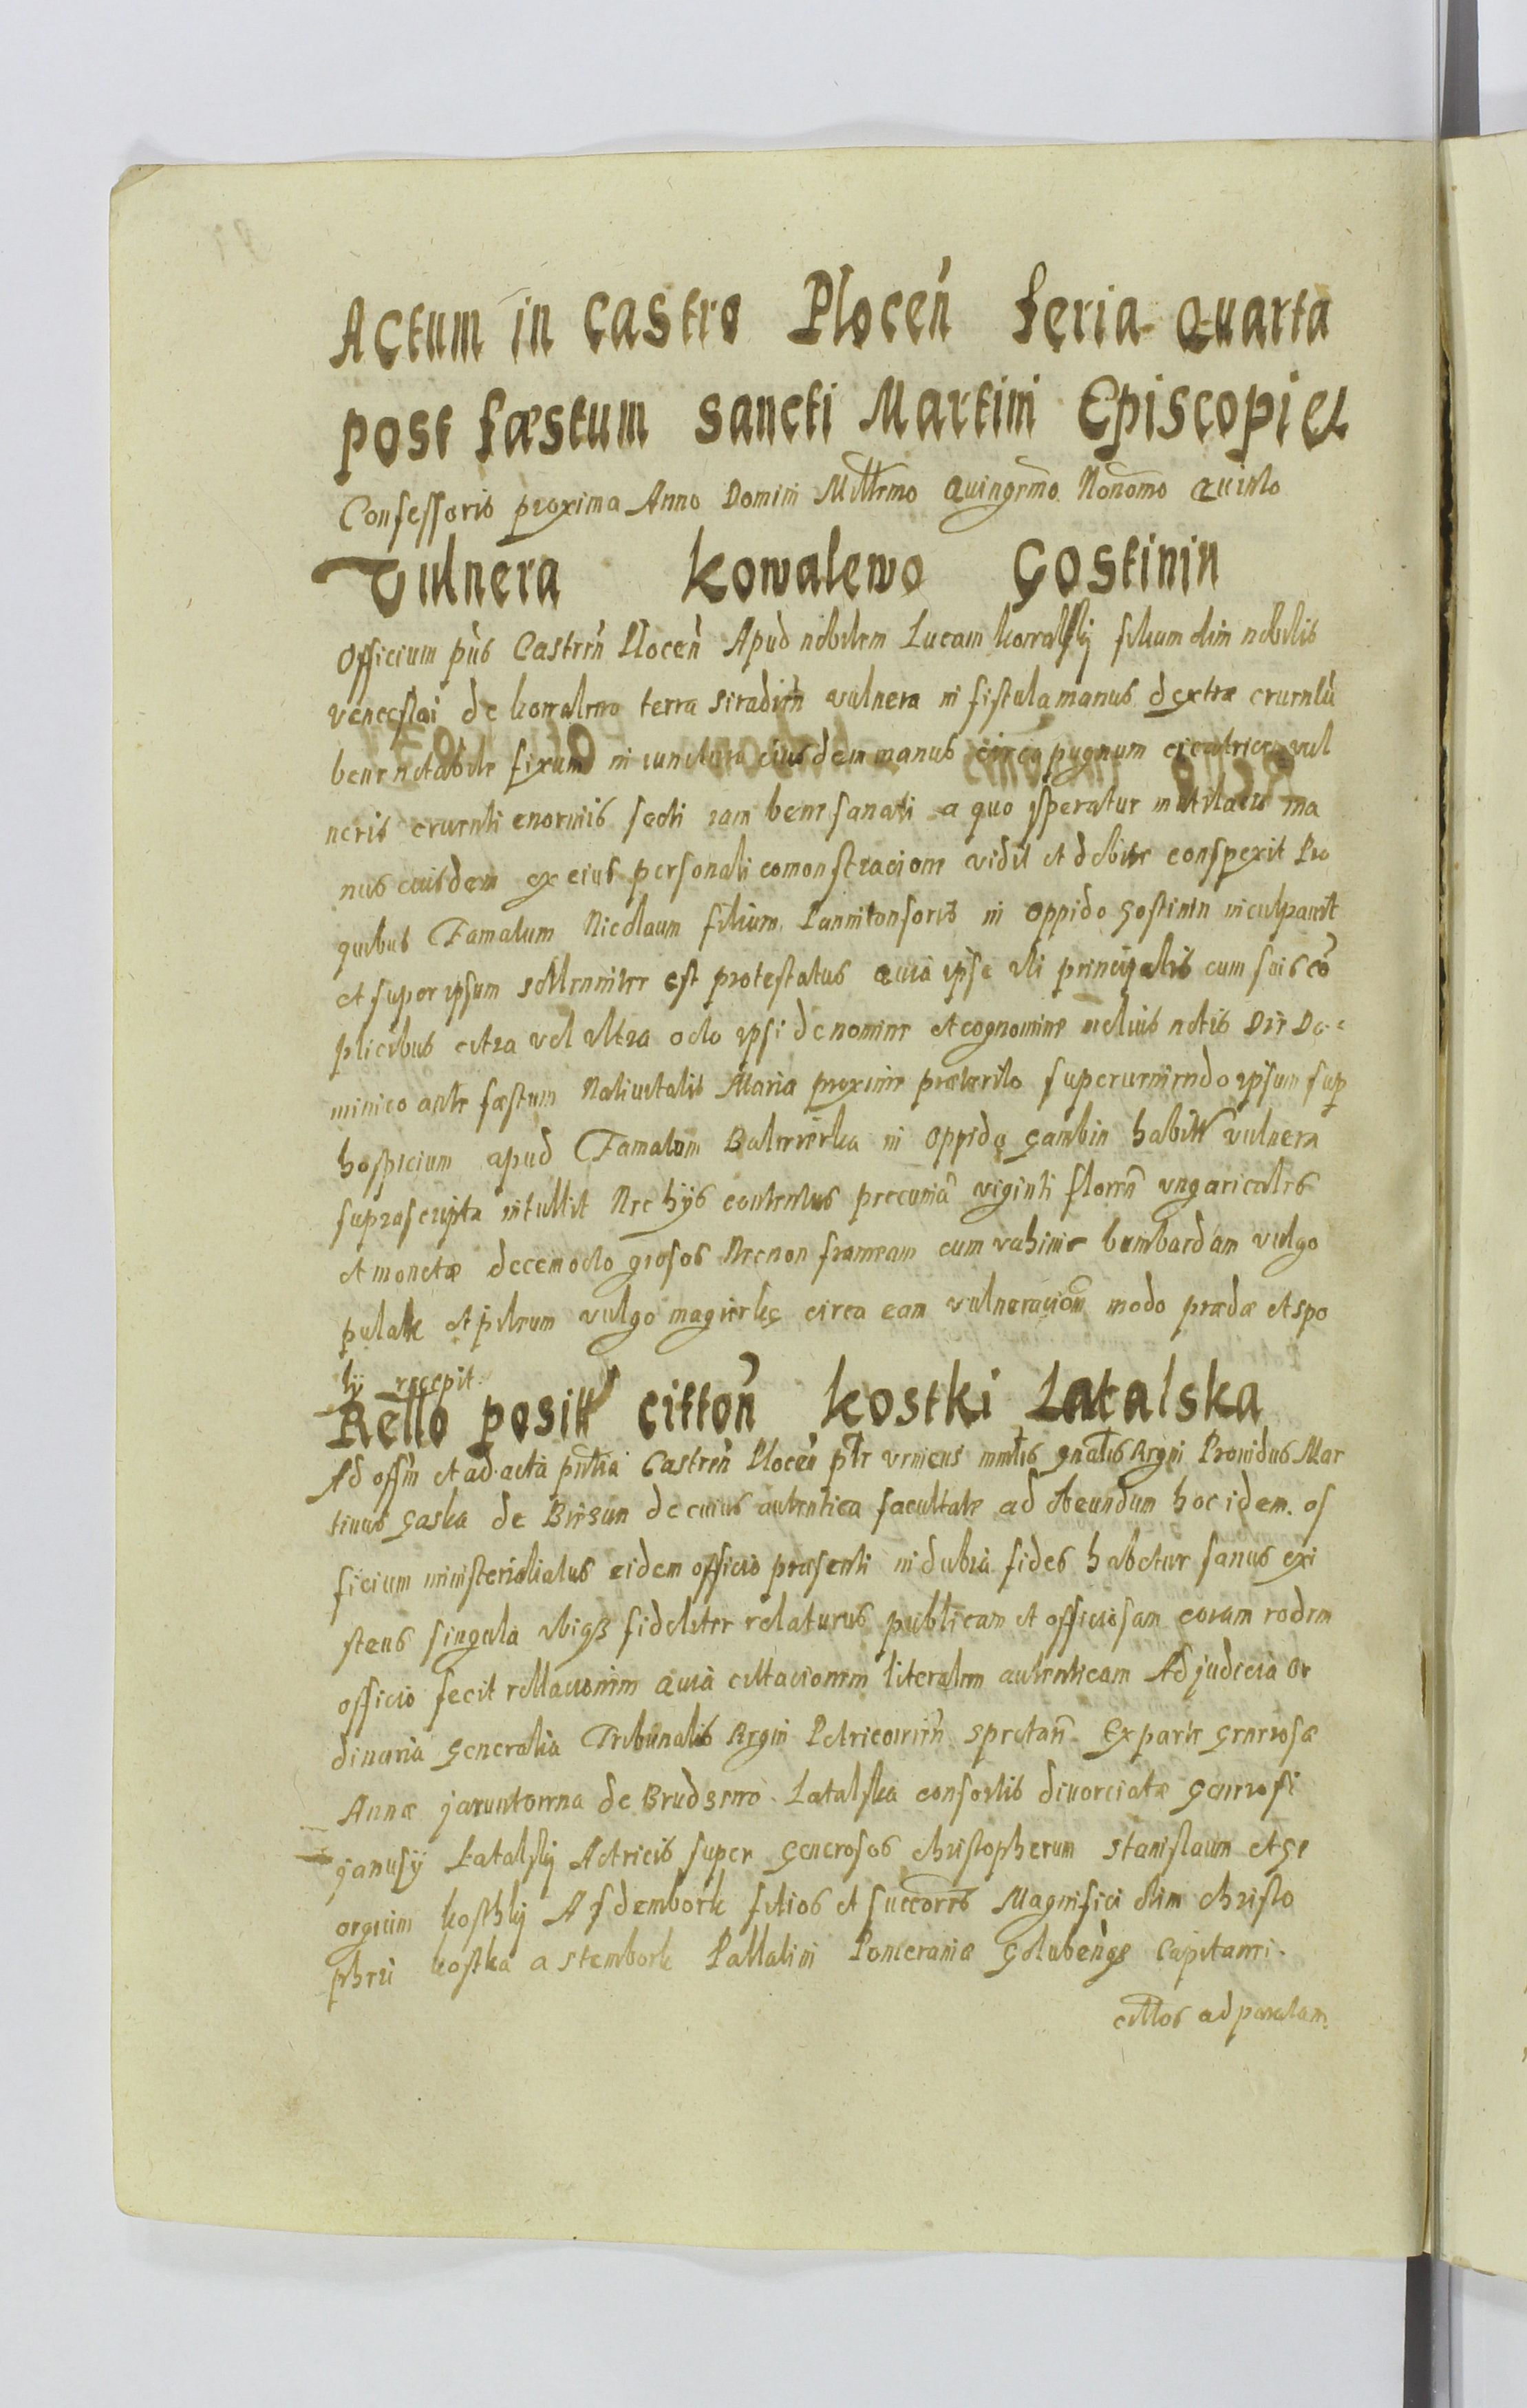 Actum in Castro Plocen̄ feria quarta
post fæstum sancti Martini Episcopi et
Confessoris proxima Anno Domini Mill̄emo Quingēmo Nonōmo quinto
Vulnera Kowalewo Gostinin
Officium p̄ns Castren̄ Plocen̄ Apud nobilem Lucam Kowalskij filium olim nobilis
Venceslai de Kowalewo terra Siradien̄ vulnera in fistula manus dextræ cruentū
bene notabile fixum in iunctura eiusdem manus circa pugnum cicatricem vul
neris cruenti enormis secti iam bene sanati a quo speratur mutilatio ma
nus eiusdem ex eius personali comonstracione vidit et debite conspexit Pro
quibus Famatum Nicolaum filium Pannitonsoris in oppido Gostinin inculpavit
et super ipsum sollenniter est protestatus quia ipse uti principalis cum suis cō
plicibus citra vel ultra octo ipsi de nomine et cognomine melius notis Die Do
minico ante fæstum Nativitatis Maria proxime præterito superveniendo ipsum sup
hospicium apud Famatum in oppido Gambin vulnera
suprascripta intullit Nec hijs contentus pecuniā viginti floren̄ ungaricales
et monetæ decem octo grosos Necnon frameam cum vahina bombardam vulgo
et pileum vulgo magierkę circa eam vulneracionē modo prædæ et spo
lij recepit
Rell̄o posit citton̄ Kostki Latalska
Ad offm̄ et ad acta Castren̄ Plocen̄ veniens gn̄alis Regni Providus Mar
tinus Gaska de de cuius autentica facultate ad obeundum hoc idem of
ficium ministerialatus eidem officio præsenti indubia fides habetur sanus exi
stens singula fideliter relaturus publicam et officiosam coram eodem
officio fecit rellacionem quia cittacionem literalem autenticam Ad judicia or
dinaria Generalia Tribunalis Regni Petricovien̄ Ex parte Generosæ
Annæ de Latalska consortis divorciatæ Generosi
Janusij Latalskij Actricis super Generosos Christopherum Stanislaum et Ge
orgium Kosthkj filios et succōres Magnifici olim Christo
pheri Kostka a Stembork Pallatini Pomeraniæ Capitanei
cittos ad